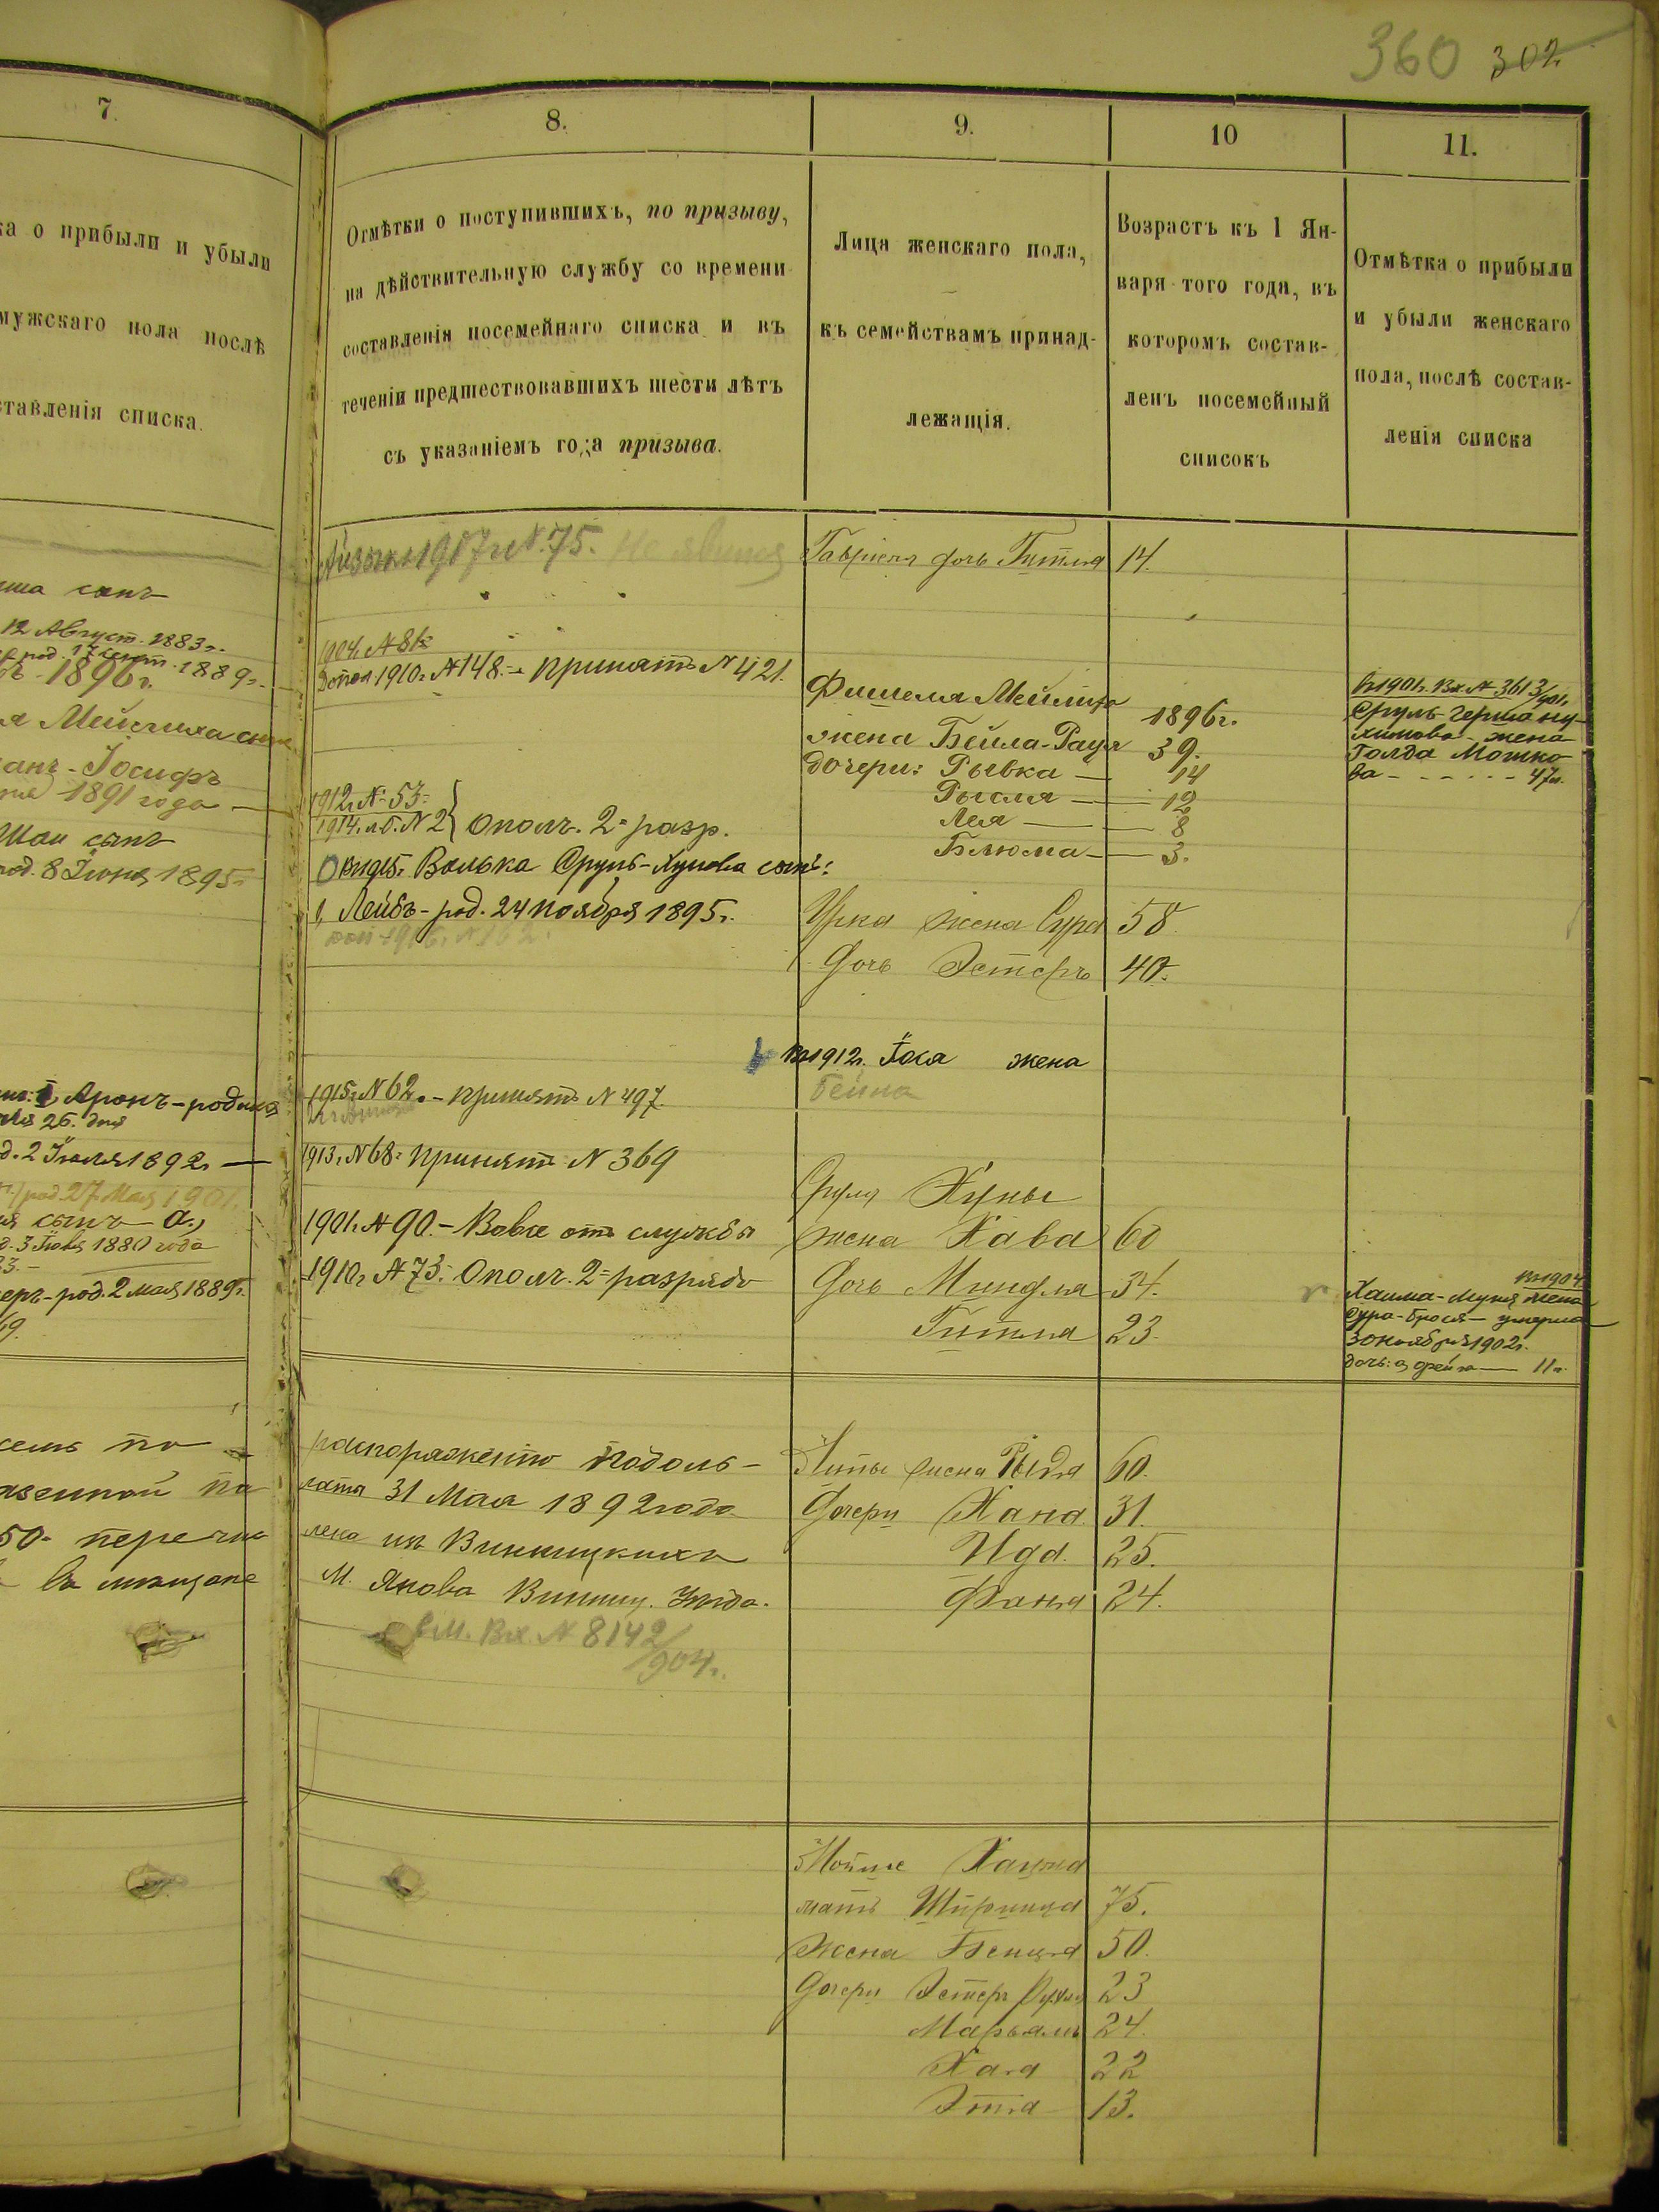 360 302
7.
8.
9.
10
11.
ка о прибыли и убыли
мужскаго пола послѣ
ставленія списка.
Отмѣтки о поступившихъ, по призыву,
на дѣйствительную службу со времени
составленія посемейнаго списка и въ
теченіи предшествовавшихъ шести лѣтъ
съ указаніемъ года призыва.
Лица женскаго пола,
къ семействамъ принад-
лежащія.
Возрастъ къ 1 Ян-
варя того года, въ
которомъ состав-
ленъ посемейный
списокъ
Отмѣтка о прибыли
и убыли женскаго
пола, послѣ состав-
ленія списка
сынъ
12 Август. 1883 г.
1889 г.
1896 г.
Іосифъ
1891 года
Шаи сынъ
род. 8 Іюня 1895 г.
Аронъ - родился
26. дня
2 Іюля 1892 г.
род. 27 Мая 1901.
сынъ а.,
3 Іюня 1880 года
род. 2 мая 1889 г.
по
50 - перечис
въ мѣщане
1907 г. № 75. Не явился
1904. № 81
1910 г. № 148. - принятъ № 421.
1912 г. № 53 -
1914. № 2 } Ополч. 2 - разр.
Волька Сруль-Хунова сынъ:
Лейбъ - род. 24 ноября 1895 г.
1916 г. № 162.
1915 г. № 62. - принятъ № 497.
1913 г. № 68 - принятъ № 369
1901 г. № 90. - Вовсе отъ службы
1910 г. № 73. Ополч. 2 - разряда
распоряженію Подоль-
латы 31 Мая 1892 года
лена изъ Винницкихъ
М. Янова Винниц. уѣзда.
см. Вх. № 8142/904 г.
Гаврiеля дочь Гитля 14.
Фишеля Мейлиха 1896 г.
жена Бейла-Раця 39.
дочери: Рывка - 14
Рысля - 12
Лея - 8
Блюма - 3.
Урка жена Сура 58
Дочь Эстеръ 40.
1912 г. жена
Бейла
Сруля Хуны
жена Хава 60
Дочь Миндля 34.
Гитля 23.
жена 60.
Дочери Хана 31.
Ида. 25.
Фаня 24.
Мошке Хаима
мать Шпринца 75.
Жена Бенця 50.
Дочери Эстеръ Рухля 23
Марьямъ 24.
Хая 22
Этя 13.
1901 г. Вх. № 3613/901,
Сруль-Герша Ну-
химова - жена
Голда Мошко
ва - - - - - 47 л.
1904
Хаима-Мунья жена
Сура-Брося - умерла
30 ноября 1902 г.
дочь: а, Фейга - 11 л.